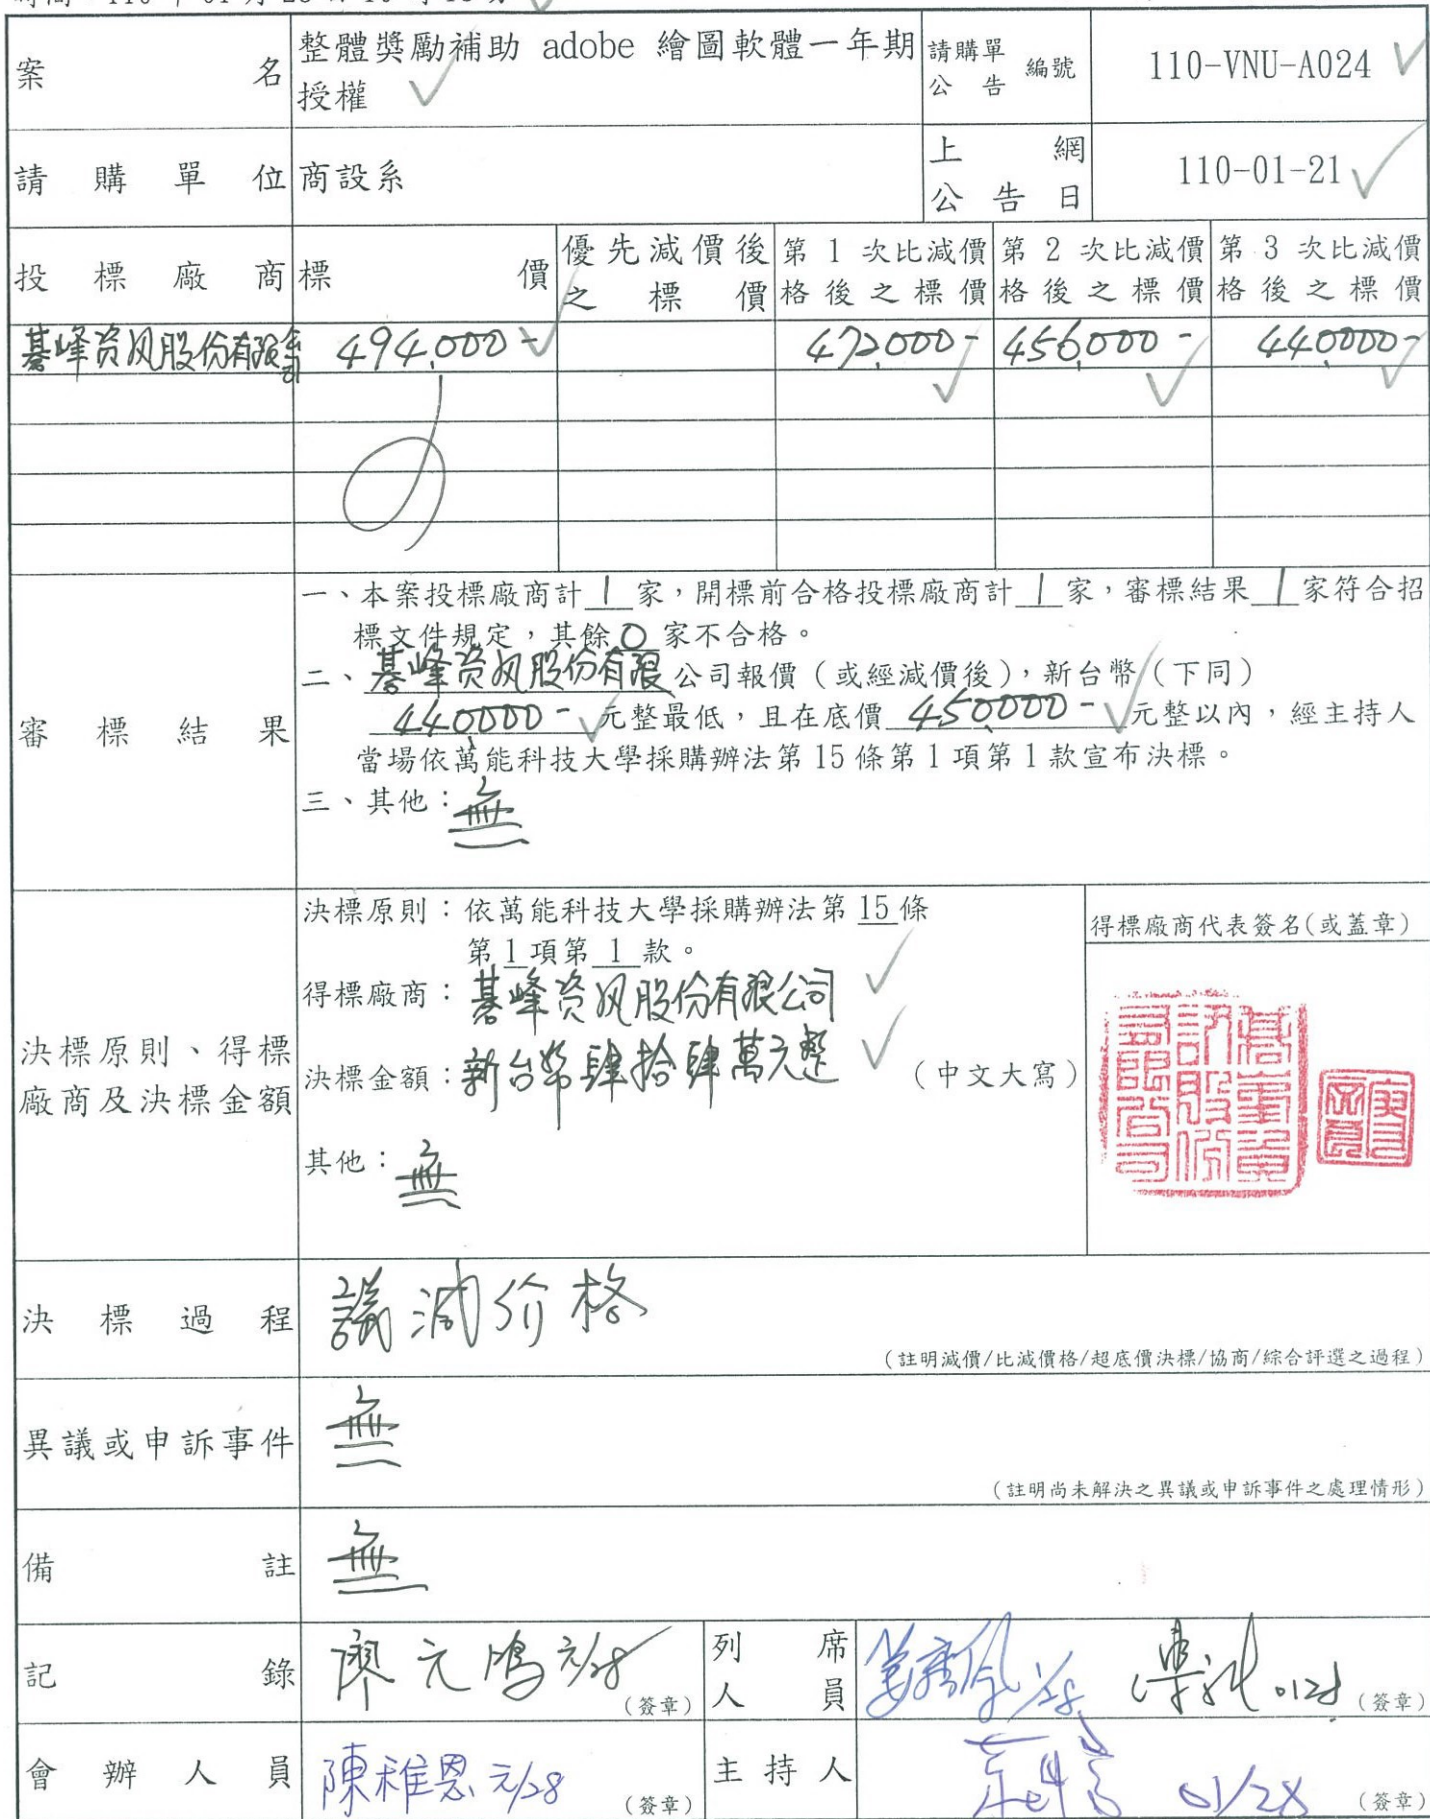 整體獎勵補助 adobe 繪圖軟體一年期
案名
授權
請購單
公告
編號
110-VNU-A024
請購單位
商設系
上網
公告日
110-01-21
投標廠商
標價
優先減價後
之標價
第 1 次比減價
格後之標價
第 2 次比減價
格後之標價
第 3 次比減價
格後之標價
碁峰資訊股份有限公司 494,000- 472,000- 456,000- 440,000-
審標結果
一、本案投標廠商計 1 家，開標前合格投標廠商計 1 家，審標結果 1 家符合招
標文件規定，其餘 0 家不合格。
二、碁峰資訊股份有限公司報價（或經減價後），新台幣（下同）
440,000- 元整最低，且在底價 450,000- 元整以內，經主持人
當場依萬能科技大學採購辦法第 15 條第 1 項第 1 款宣布決標。
三、其他：無
決標原則、得標
廠商及決標金額
決標原則：依萬能科技大學採購辦法第 15 條
第 1 項第 1 款。
得標廠商：碁峰資訊股份有限公司
決標金額：新台幣肆拾肆萬元整（中文大寫）
其他：無
得標廠商代表簽名(或蓋章)
決標過程
議減价格
（註明減價/比減價格/超底價決標/協商/綜合評選之過程）
異議或申訴事件
無
（註明尚未解決之異議或申訴事件之處理情形）
備註
無
記錄
廖元鴻 元/28
(簽章)
列席
人員
1/28
0128
(簽章)
會辦人員
陳稚恩 元/28
(簽章)
主持人
01/28
(簽章)